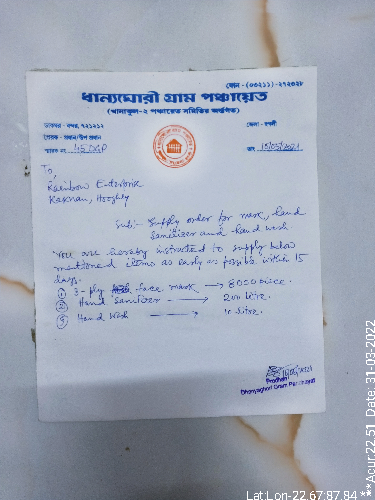 ফোন - (০৩২১১)-২৭২৩২৮
ধান্যঘোরী গ্রাম পঞ্চায়েত
(খানাকুল-২ পঞ্চায়েত সমিতির অন্তর্গত)
ডাকঘর - বন্দর, ৭১২১২
জেলা - হুগলী
প্রেরক - প্রধান/উপ প্রধান
স্মারক নং 45 DGP
তাং 10/05/2021
To,
Rainbow Enterprise
Kasnan, Hooghly
Sub:- Supply order for mask, hand
sanitizer and hand wash
You are hereby instructed to supply below
mentioned items as early as possible within 15
days.
① 3-ply face mask → 8000 piece.
② Hand Sanitizer → 200 litre.
③ Hand Wash → 10 litre.
10/05/2021
Prodhan
Dhanyaghori Gram Panchayat
Lat Lon-22.67:87.84
***Acur:22.51 Date: 31-03-2022